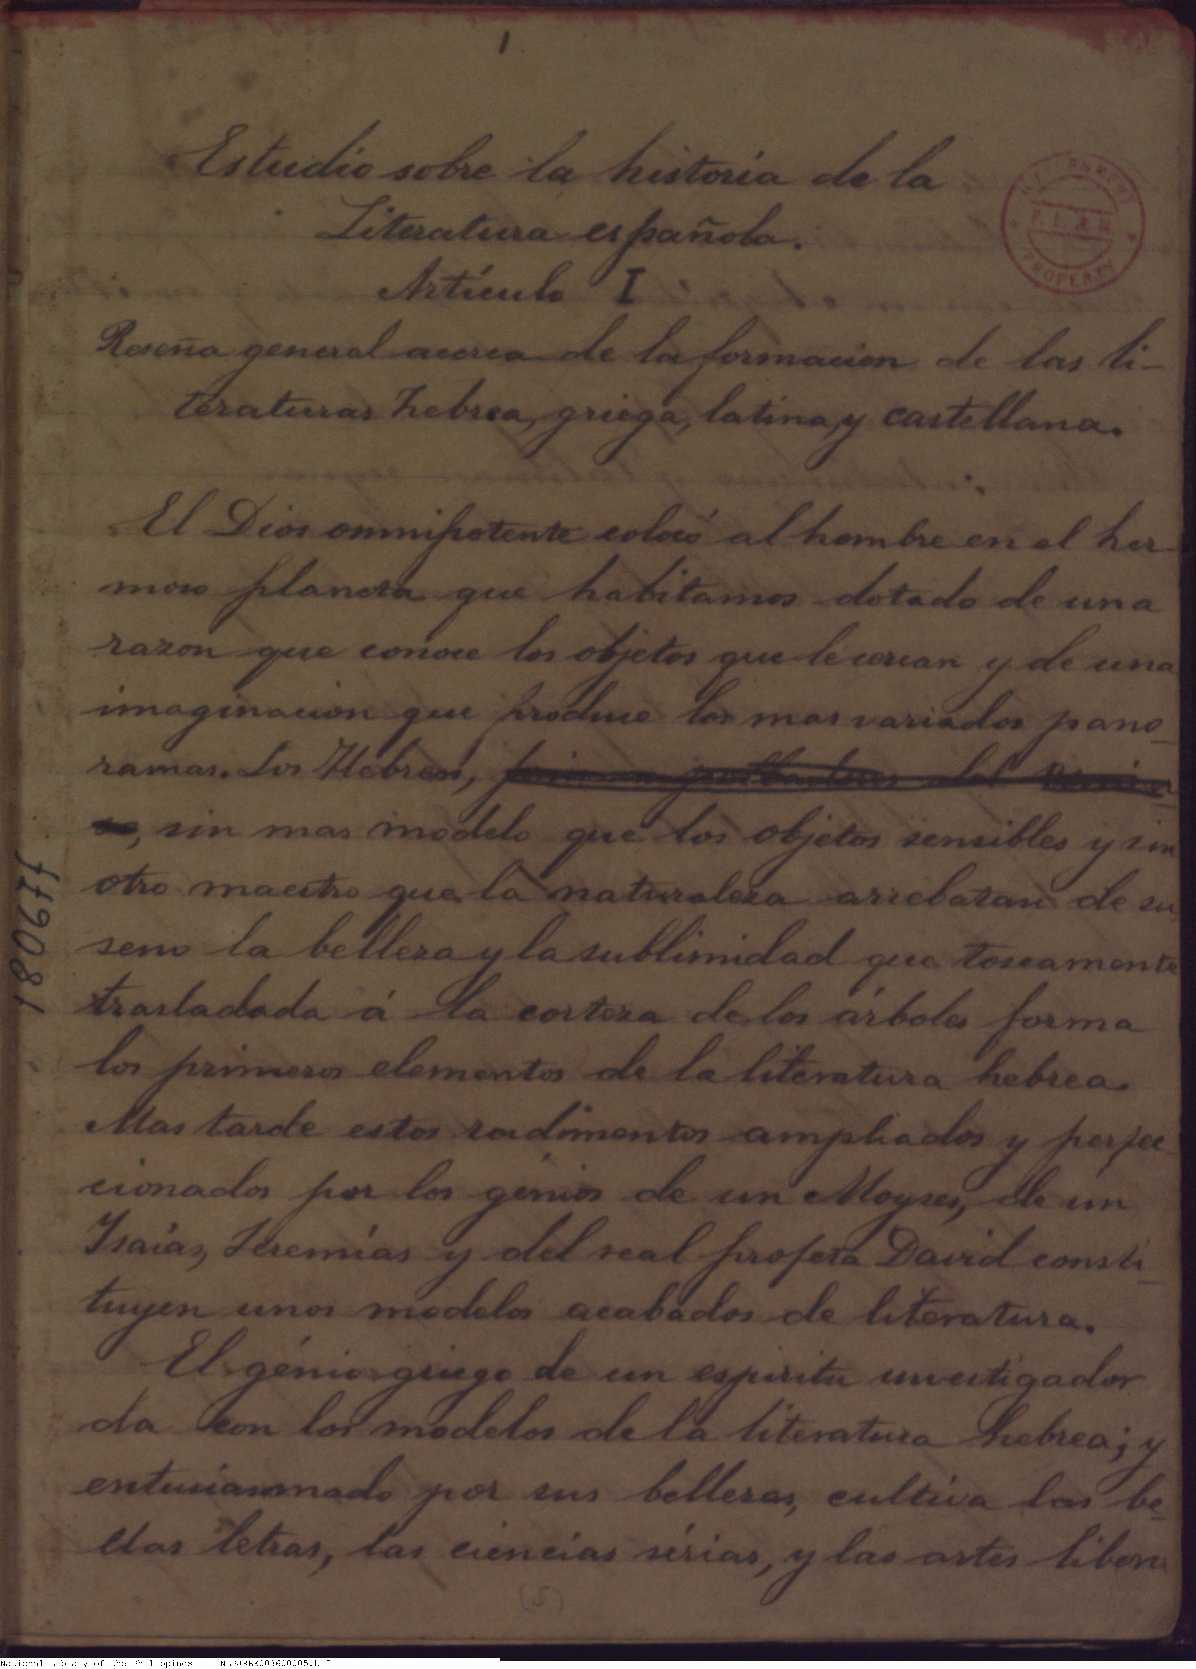 1
Estudio sobre la historia de la
Literatura española.
Artículo I
Reseña general acerca de la formacion de las li-
teraturas hebrea, griega, latina, y castellana.
El Dios omnipotente colocó al hombre en el her-
moso planeta que habitamos dotado de una
razon que conoce los objetos que le cercan y de una
imaginacion que produce los mas variados pano-
ramas. Los Hebreos,
, sin mas modelo que los objetos sensibles y sin
otro maestro que la naturaleza arrebatan de su
seno la belleza y la sublimidad que toscamente
trasladada á la corteza de los árboles forma
los primeros elementos de la literatura hebrea.
Mas tarde estos rudimentos ampliados y perfec
cionados por los génios de un Moyses, de un
Isaías, Jeremías y del real profeta David consti-
tuyen unos modelos acabados de literatura.
El génio griego de un espiritu investigador
da con los modelos de la literatura hebrea; y
entusiasmado por sus bellezas, cultiva las be-
llas letras, las ciencias sérias, y las artes libera
(5)
18067f
PROPERTY
National Library of the Philippines